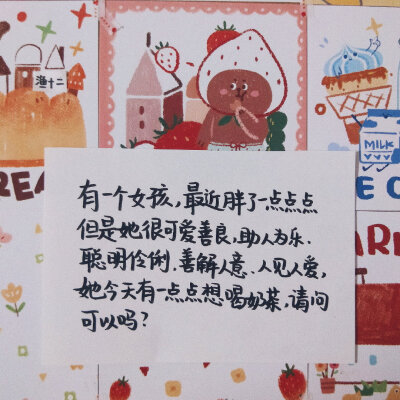 渔十二
MILK
有一个女孩，最近胖了一点点点
但是她很可爱善良，助人为乐、
聪明伶俐、善解人意、人见人爱，
她今天有一点点想喝奶茶，请问
可以吗？